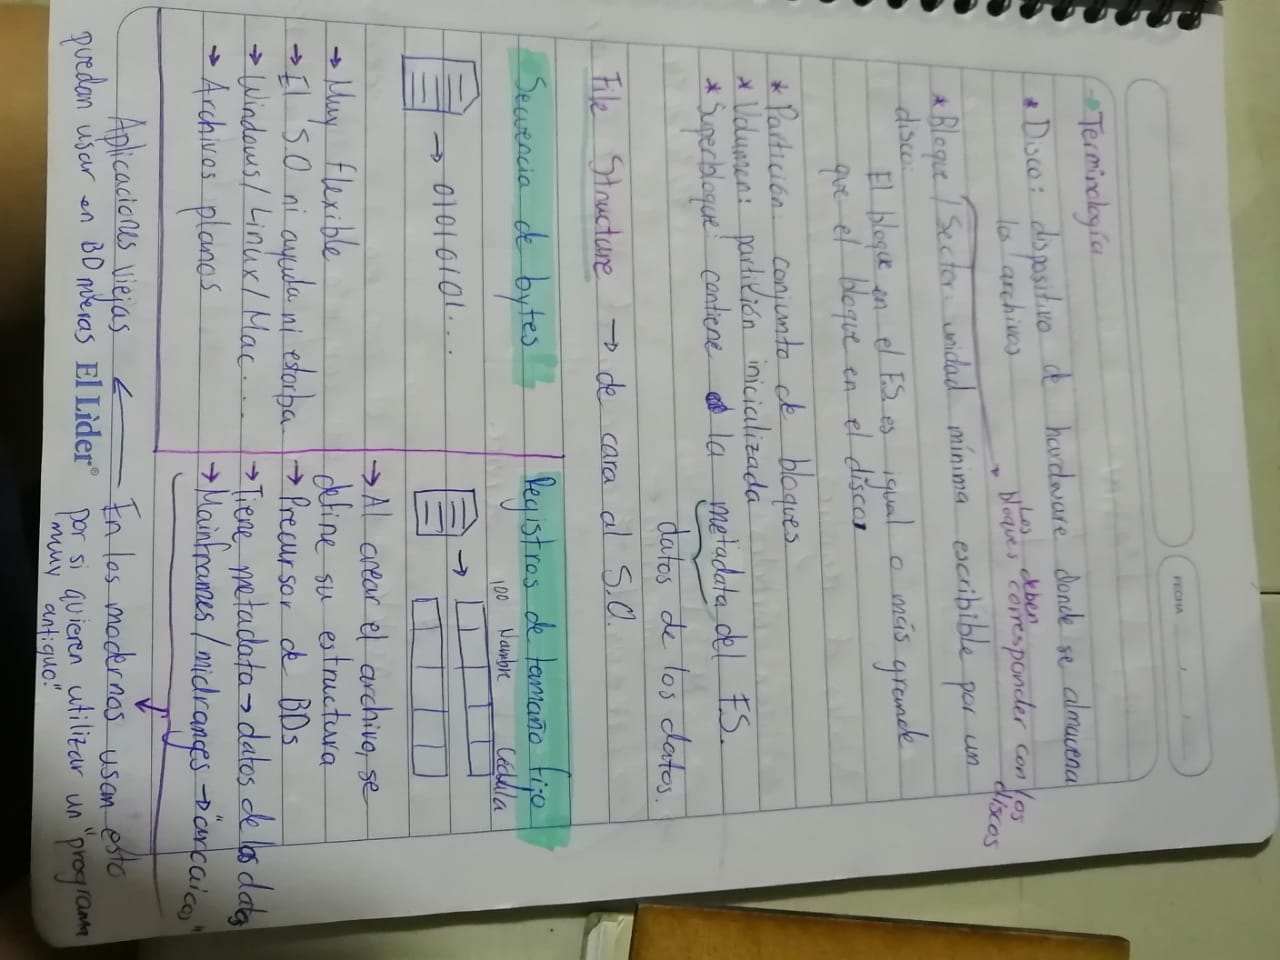 FECHA
Terminología
* Disco: dispositivo de hardware donde se almacena
los archivos
Los bloques deben corresponder con los
discos
* Bloque / Sector: unidad mínima escribible por un
disco:
El bloque en el F.S. es igual o más grande
que el bloque en el disco
* Partición: conjunto de bloques
* Volumen: partición inicializada
* Superbloque: contiene la metadata del F.S.
datos de los datos.
File Structure → de cara al S.O.
Secuencia de bytes
→ 01010101...
→ Muy flexible
→ El S.O ni ayuda ni estorba
→ Windows/ Linux/ Mac...
→ Archivos planos
Registros de tamaño fijo
100 Nombre Cédula
→
→ Al crear el archivo, se
define su estructura
→ Precursor de BDs
→ Tiene metadata → datos de los datos
→ Mainframes / midranges → "arcaicos"
En los modernos usan esto
por si quieren utilizar un "programa
muy antiguo."
Aplicaciones viejas ←
puedan usar en BD nuevas
El Lìder®